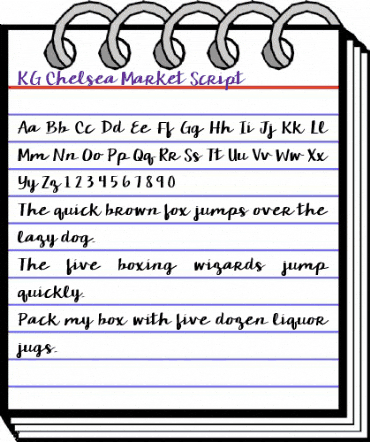 KG Chelsea Market Script
Aa Bb Cc Dd Ee Ff Gg Hh Ii Jj Kk Ll
Mm Nn Oo Pp Qq Rr Ss Tt Uu Vv Ww Xx
Yy Zz 1 2 3 4 5 6 7 8 9 0
The quick brown fox jumps over the
lazy dog.
The five boxing wizards jump
quickly.
Pack my box with five dozen liquor
jugs.